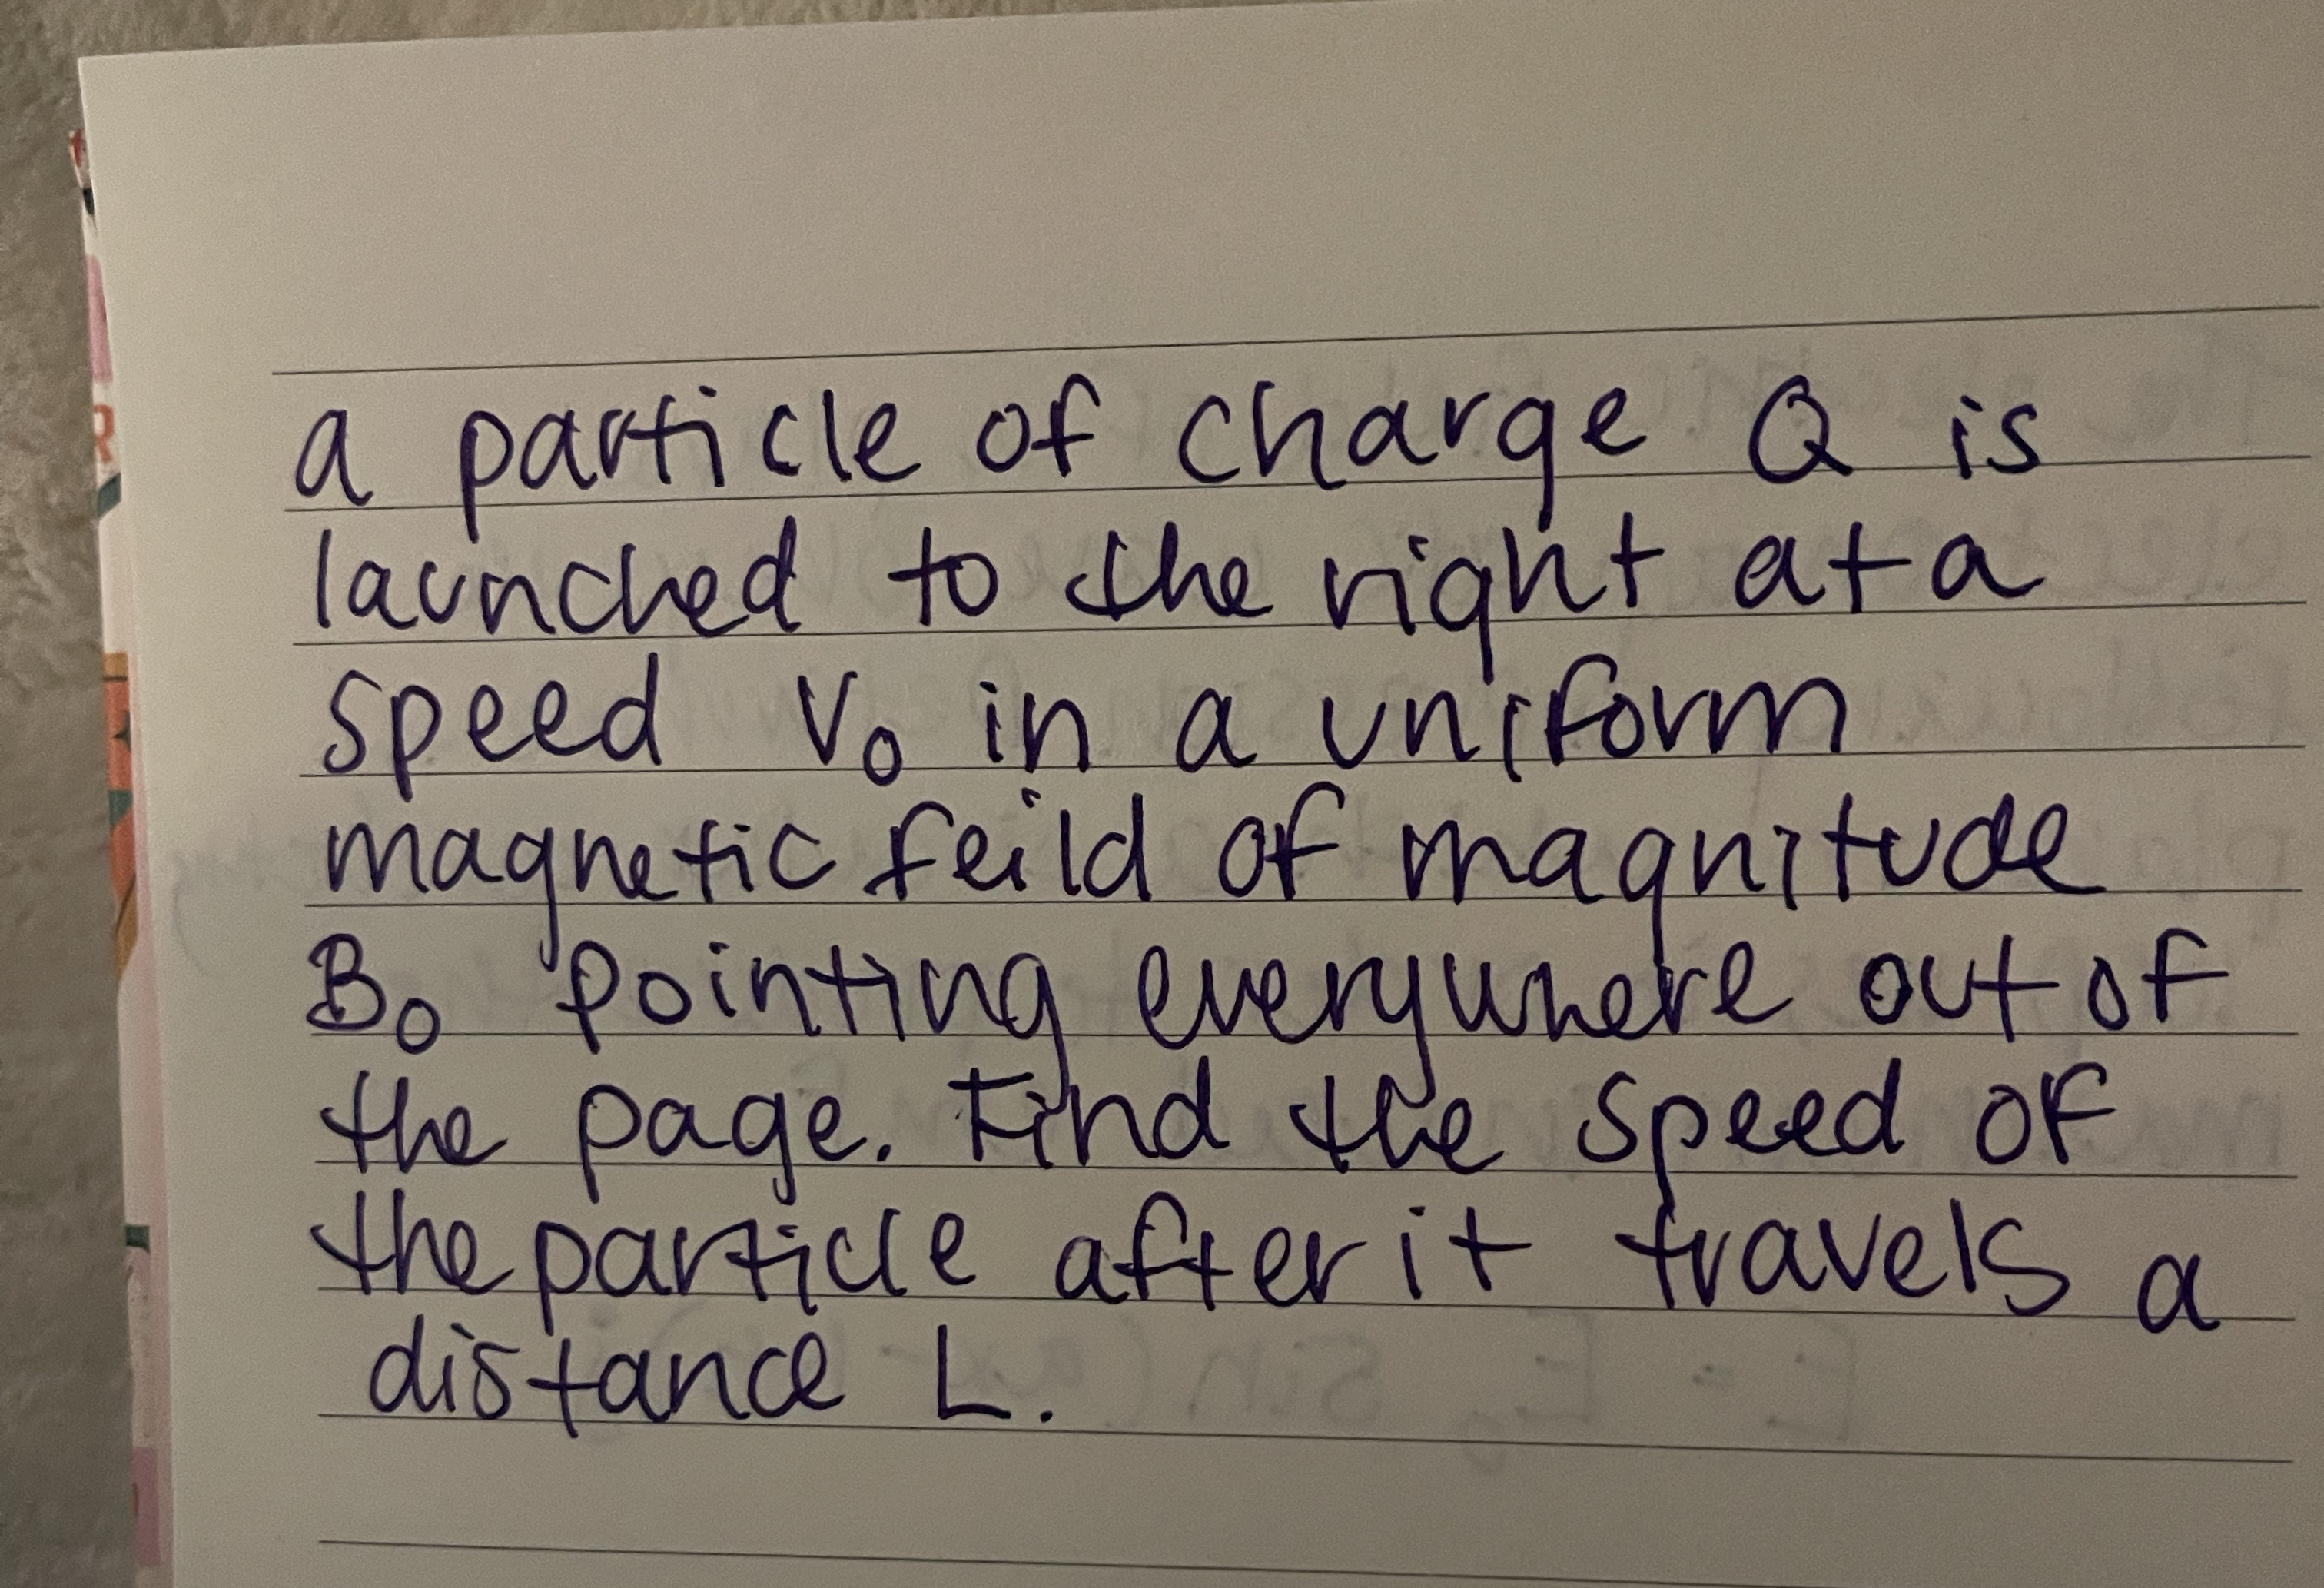 a particle of charge Q is
launched to the right at a
speed V₀ in a uniform
magnetic feild of magnitude
B₀ pointing everywhere out of
the page. Find the speed of
the particle after it travels a
distance L.